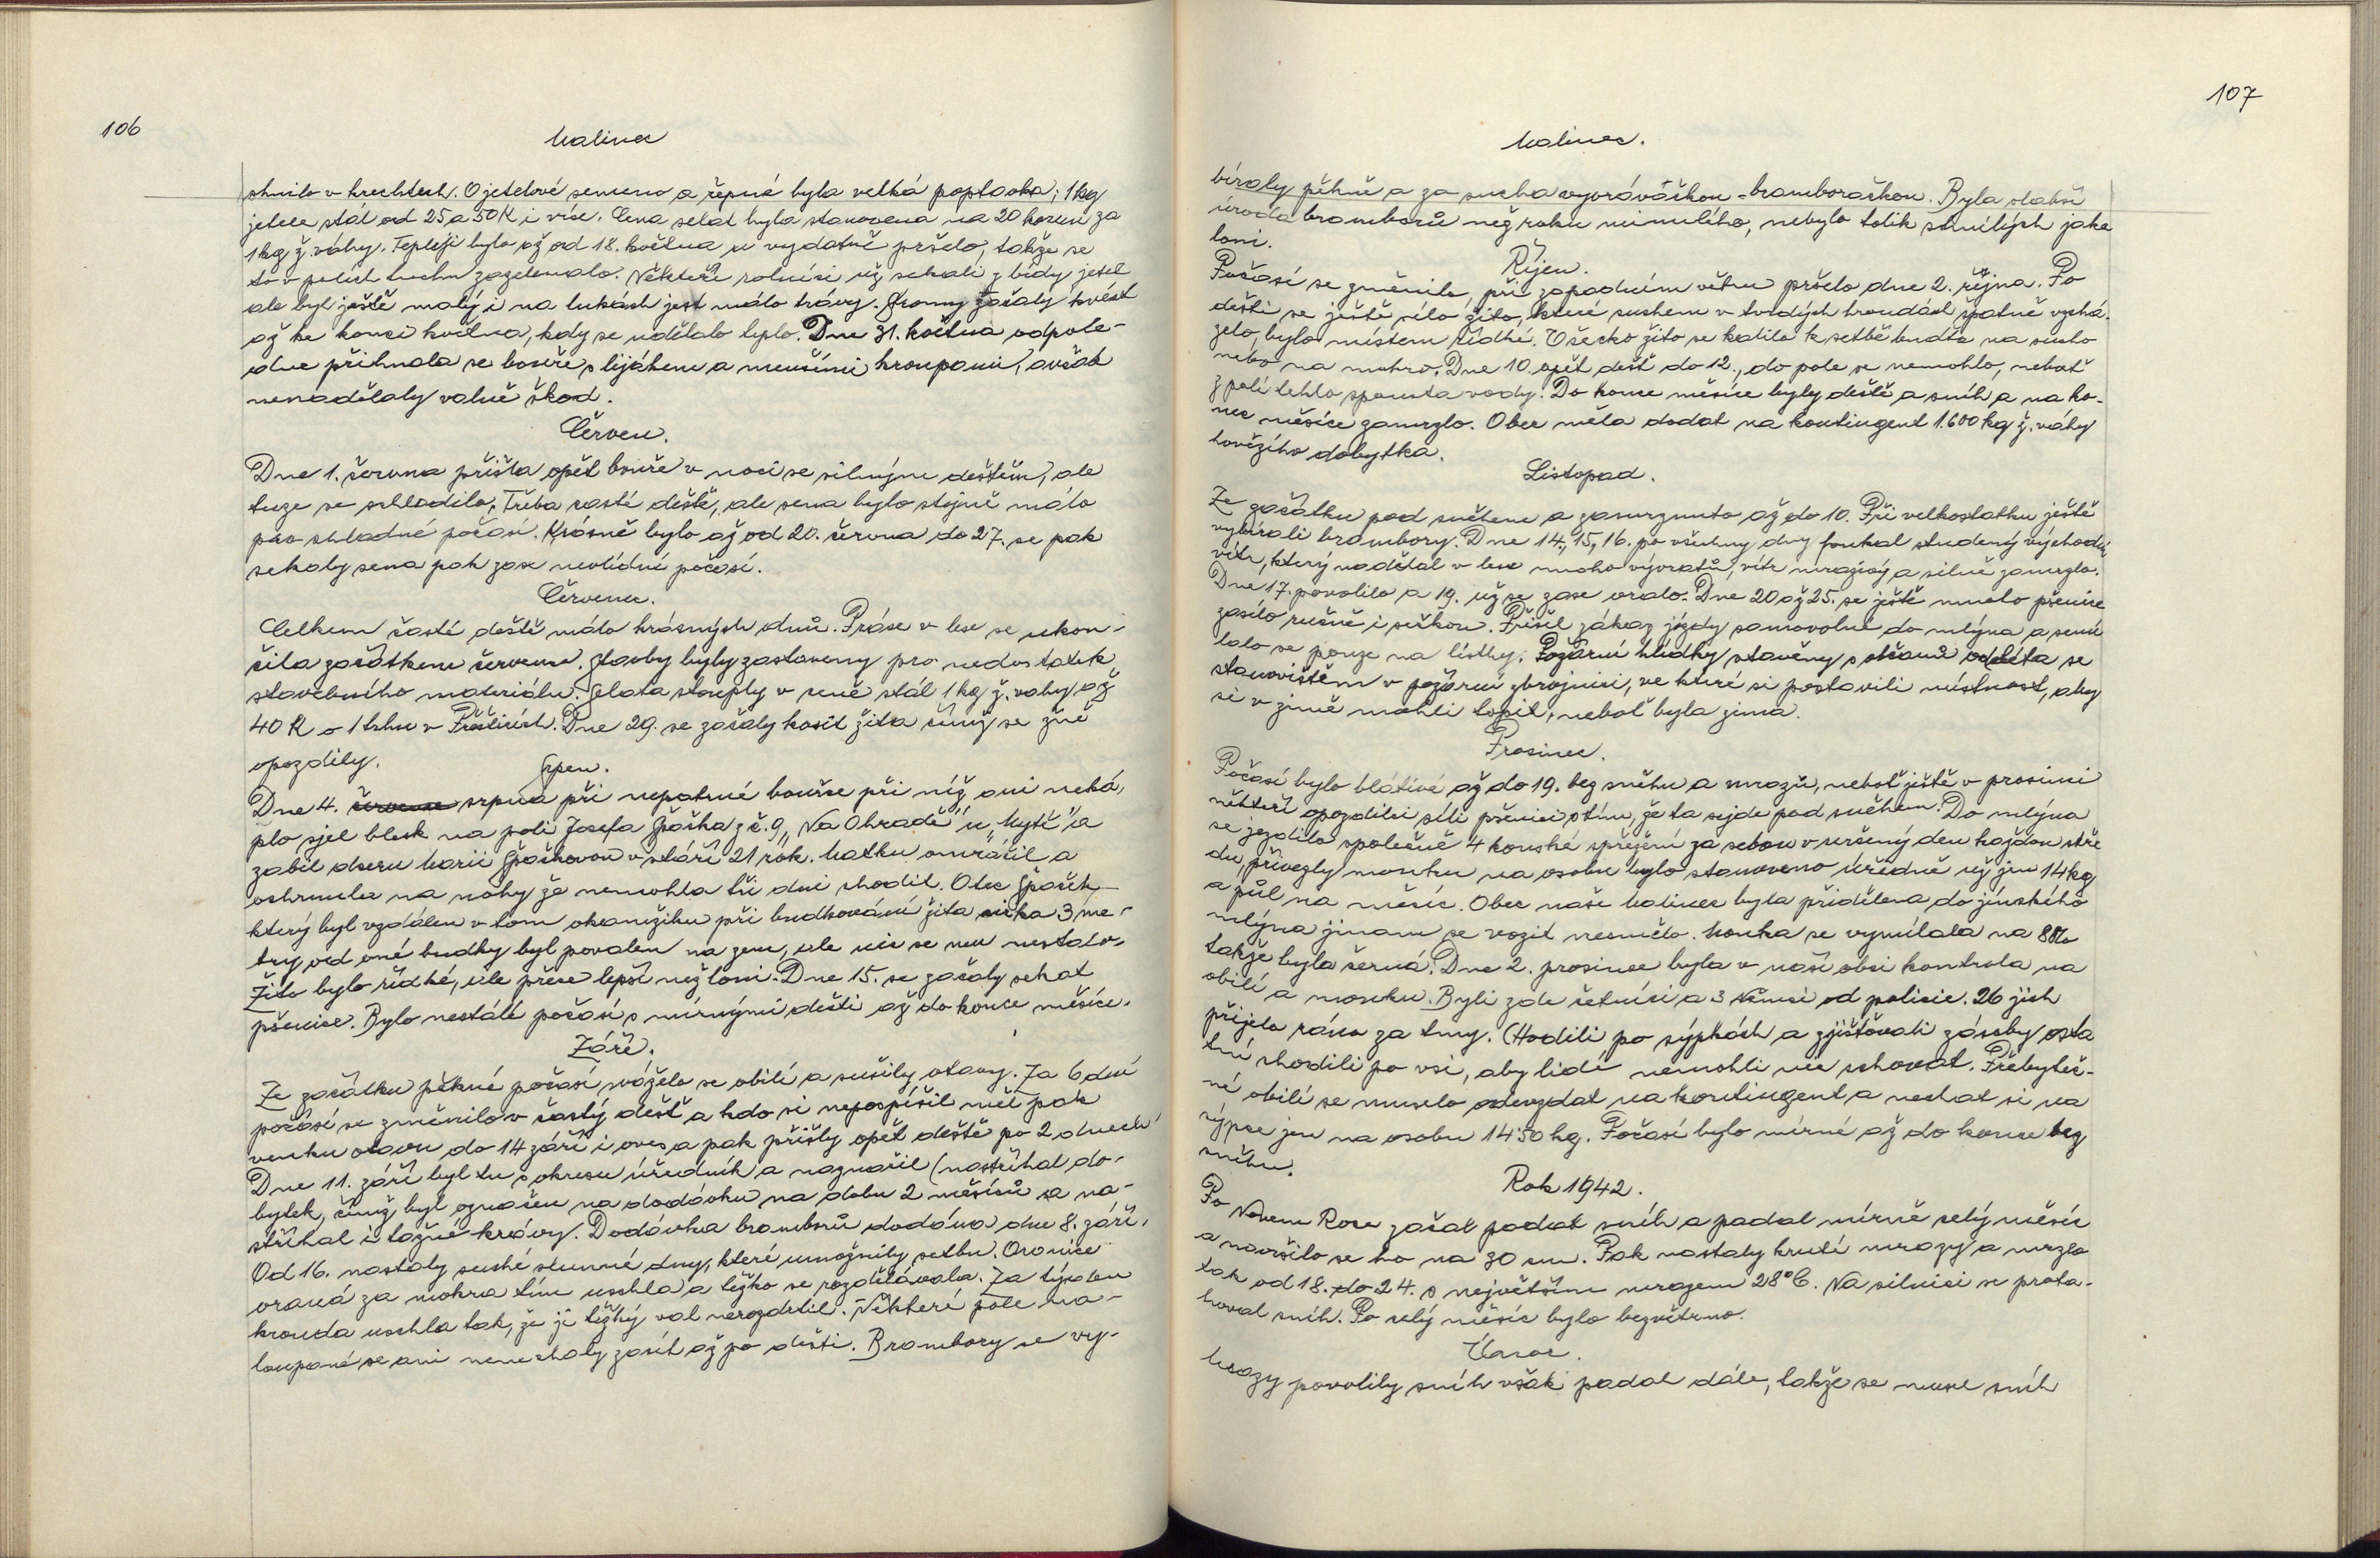 106
Malinec
shnilo v krechtech. O jetelové semeno a řepné byla velká poptavka; 1 kg
jetele stál od 25 a 50 K i více. Cena selat byla stanovena na 20 korun za
1 kg ž. váhy. Tepleji bylo až od 18. května a vydatně pršelo, takže se
to v polích trochu zazelenalo. Někteří rolníci už sekali z bídy jetel
ale byl ještě malý i na lukách jest málo trávy. Stromy začaly kvést
až ke konci května, kdy se udělalo teplo. Dne 31. května odpole-
dne přihnala se bouře s lijákem a menšími kroupami, avšak
nenadělaly valně škod.
Červen.
Dne 1. června přišla opět bouře v noci se silným deštěm, ale
tuze se schladilo. Třeba časté deště, ale sena bylo stejně málo
pro chladné počasí. Krásně bylo až od 20. června do 27. se pak
sekaly sena pak zase nevlídné počasí.
Červenec.
Celkem časté deště málo krásných dnů. Práce v lese se ukon-
čila začátkem července. Stavby byly zastaveny pro nedostatek
stavebního materiálu. Selata stouply v ceně stál 1 kg ž. vahy až
40 K o 1 trhu v Přešticích. Dne 29. se začaly kosit žita čímž se žně
opozdily.
Srpen.
Dne 4. července srpna při nepatrné bouřce při níž ani neká-
plo sjel blesk na poli Josefa Špačka z č. 9 „Na Ohradě" u „Mytě" a
zabil dceru Marii Špačkovou v stáří 21 rok. Matku omráčil a
ochrnula na nohy že nemohla tři dni chodit. Otec Špaček
který byl vzdálen v tom okamžiku při budkování žita cirka 3 me-
try od oné budky byl povalen na zem, ale nic se mu nestalo.
Žito bylo řídké, ale přece lepší než loni. Dne 15. se začaly sekat
pšenice. Bylo nestálé počasí s mírnými dešti až do konce měsíce.
Září.
Ze začátku pěkné počasí sváželo se obilí a sušily otavy. Za 6 dní
počasí se změnilo v častý déšť a kdo si nepospíšil měl pak
venku otavu do 14 září i oves a pak přišly opět deště po 2 dnech
Dne 11. září byl tu s okresu úředník a naznačil (nastříhal do-
bytek, čímž byl označen na dodávku na dobu 2 měsíců a na-
stříhal i tažné krávy. Dodávka bramborů dodána dne 8. září.
Od 16. nastaly suché slunné dny, které umožnily setbu. Oranice
oraná za mokra tím uschla a těžko se rozdělávala. Za týden
hrouda uschla tak, že jí těžký val nerozdrtil. Některé pole na-
loupané se ani nenechaly zasít až po dešti. Brambory se vy-
107
Malinec.
bíraly pěkně a za sucha vyoráváčkou - bramboračkou. Byla slabší
úroda bramborů než roku minulého, nebylo tolik shnilých jako
loni.
Říjen.
Počasí se změnilo, při zapadním větru pršelo dne 2. října. Po
dešti se ještě sélo žito, které suchem v tvrdých hroudách špatně vzchá-
zelo, bylo místem řídké. Všecko žito se kalilo k setbě buďto na sucho
nebo na mokro. Dne 10. opět déšť do 12., do pole se nemohlo, neboť
z polí tehlo spousta vody. Do konce měsíce byly deště a sníh a na ko-
nec měsíce zamrzlo. Obec měla dodat na kontingent 1.600 kg ž. váhy
hovězího dobytka.
Listopad.
Ze začátku pod sněhem a zamrznuto až do 10. Při velkostatku ještě
vybírali brambory. Dne 14., 15., 16. po všechny dny foukal studený východní
vítr, který nadělal v lese mnoho vývratů, vítr mrazivý a silně zamrzlo.
Dne 17. povolilo a 19. už se zase oralo. Dne 20 až 25. se ještě mnoho pšenice
zasilo ručně i sečkou. Přišel zákaz jízdy samovolné do mlýna a semí
lalo se pouze na lístky. Požární hlídky stavěny s občanů od léta se
stanovištěm v požární zbrojnici, ve které si postavili místnost, aby
si v zimě mohli topit, neboť byla zima.
Prosinec.
Počasí bylo blátivé až do 19. bez sněhu a mrazů, neboť ještě v prosinci
někteří opozdilci síli pšenici s tím, že ta vejde pod sněhem. Do mlýna
se jezdilo společně 4 koňské spřežení za sebou v určený den každou stře
du, přivezly mouku na osobu bylo stanoveno úředně už jen 14 kg
a půl na měsíc. Obec naše Malinec byla přidělena do jínského
mlýna jinam se vozit nesmělo. Mouka se vymílala na 80%
takže byla černá. Dne 2. prosince byla v naší obci kontrola na
obilí a mouku. Byli zde četníci a 3 Němci od policie. 26 jich
přijelo ráno za tmy. Chodili po sýpkách a zjišťovali zásoby osta
tní chodili po vsi, aby lidé nemohli nic schovat. Přebyteč-
né obilí se muselo odevzdat na kontingent a nechat si na
sýpce jen na osobu 14.50 kg. Počasí bylo mírné až do konce bez
sněhu.
Rok 1942.
Po Novem Roce začal padat sníh a padal mírně celý měsíc
a navršilo se ho na 30 cm. Pak nastaly kruté mrazy a mrzlo
tak od 18. do 24. s největším mrazem 28°C. Na silnici se proha-
zoval sníh. Po celý měsíc bylo bezvětrno.
Únor.
Mrazy povolily sníh však padal dále, takže se musel sníh